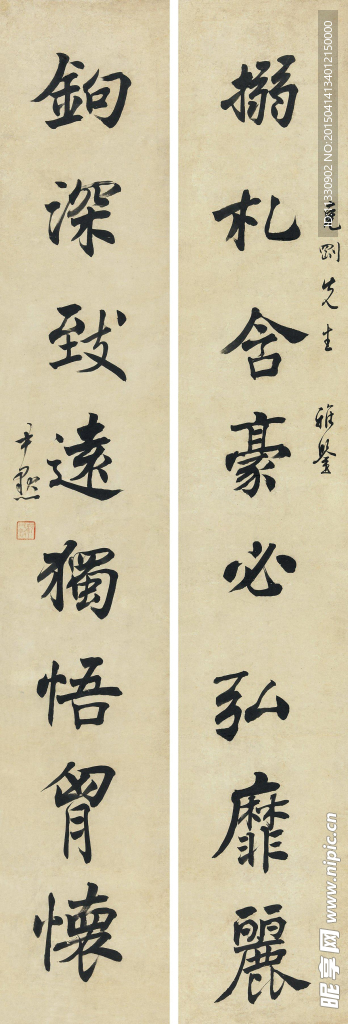 搦札含豪必弘靡麗
剛先生 雅鑒
鉤深致遠獨悟胷懷
尹默
ID:4330902 NO:20150414134012150000
昵享网 www.nipic.cn